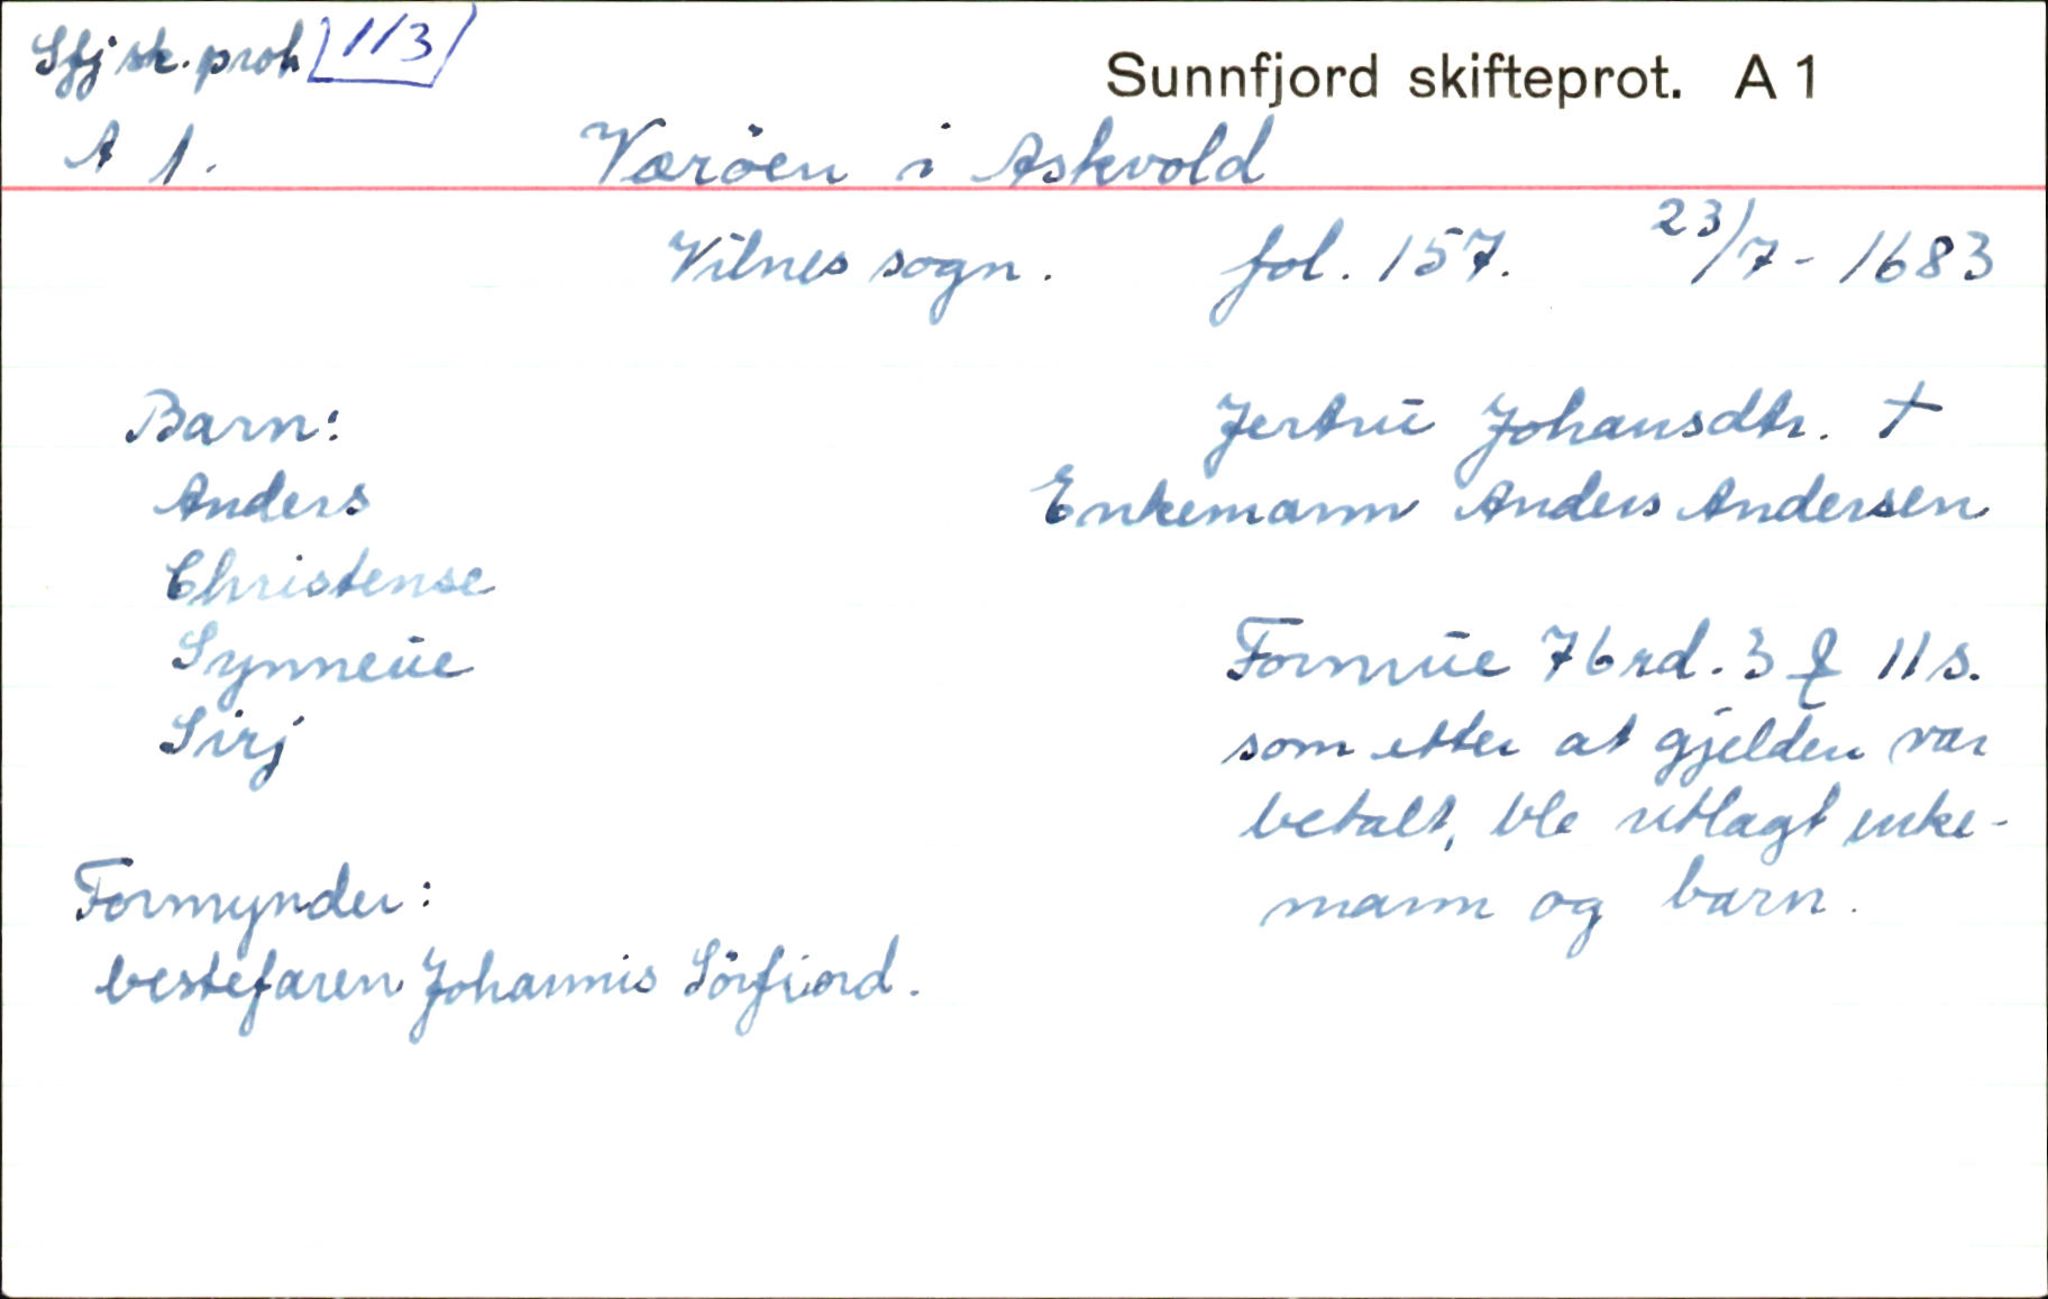 Sfj sk. prot. 113
Sunnfjord skifteprot. A 1
A 1.
Væröen i Askvold
Vilnes sogn. fol. 157. 23/7 - 1683
Barn:
Jertrü Johansdtr. †
Anders
Enkemann Anders Andersen
Christense
Synneüe
Formüe 76 rd. 3 ₰ 11 s.
Sirj
som etter at gjelden var
betalt, ble utlagt enke-
Formynder:
mann og barn.
bestefaren Johannis Sörfiord.